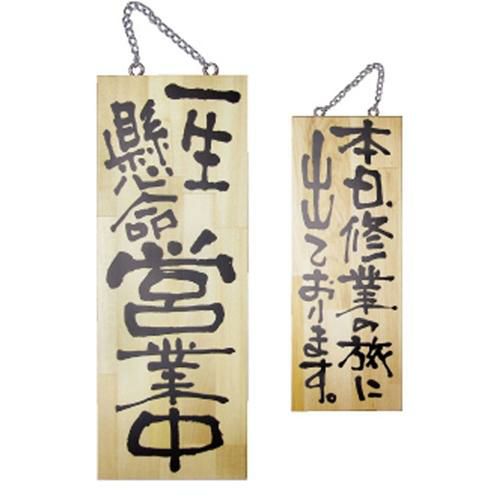 一生
懸命
営業中
本日、修業の旅に
出ております。